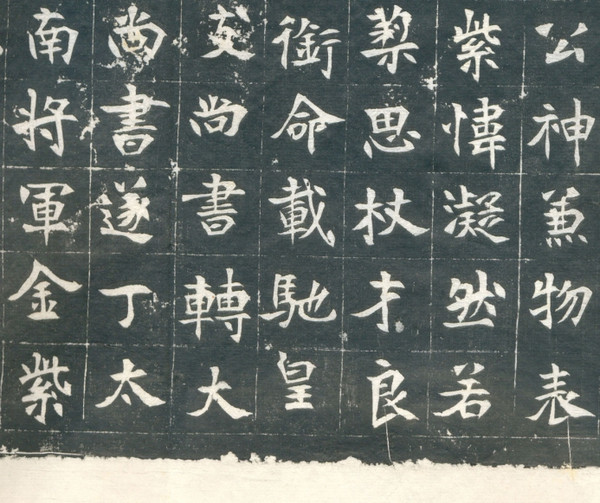 公神兼物表
紫幃凝然若
思杖才良
銜命載馳皇
支尚書轉大
尚書遂丁太
南將軍金紫